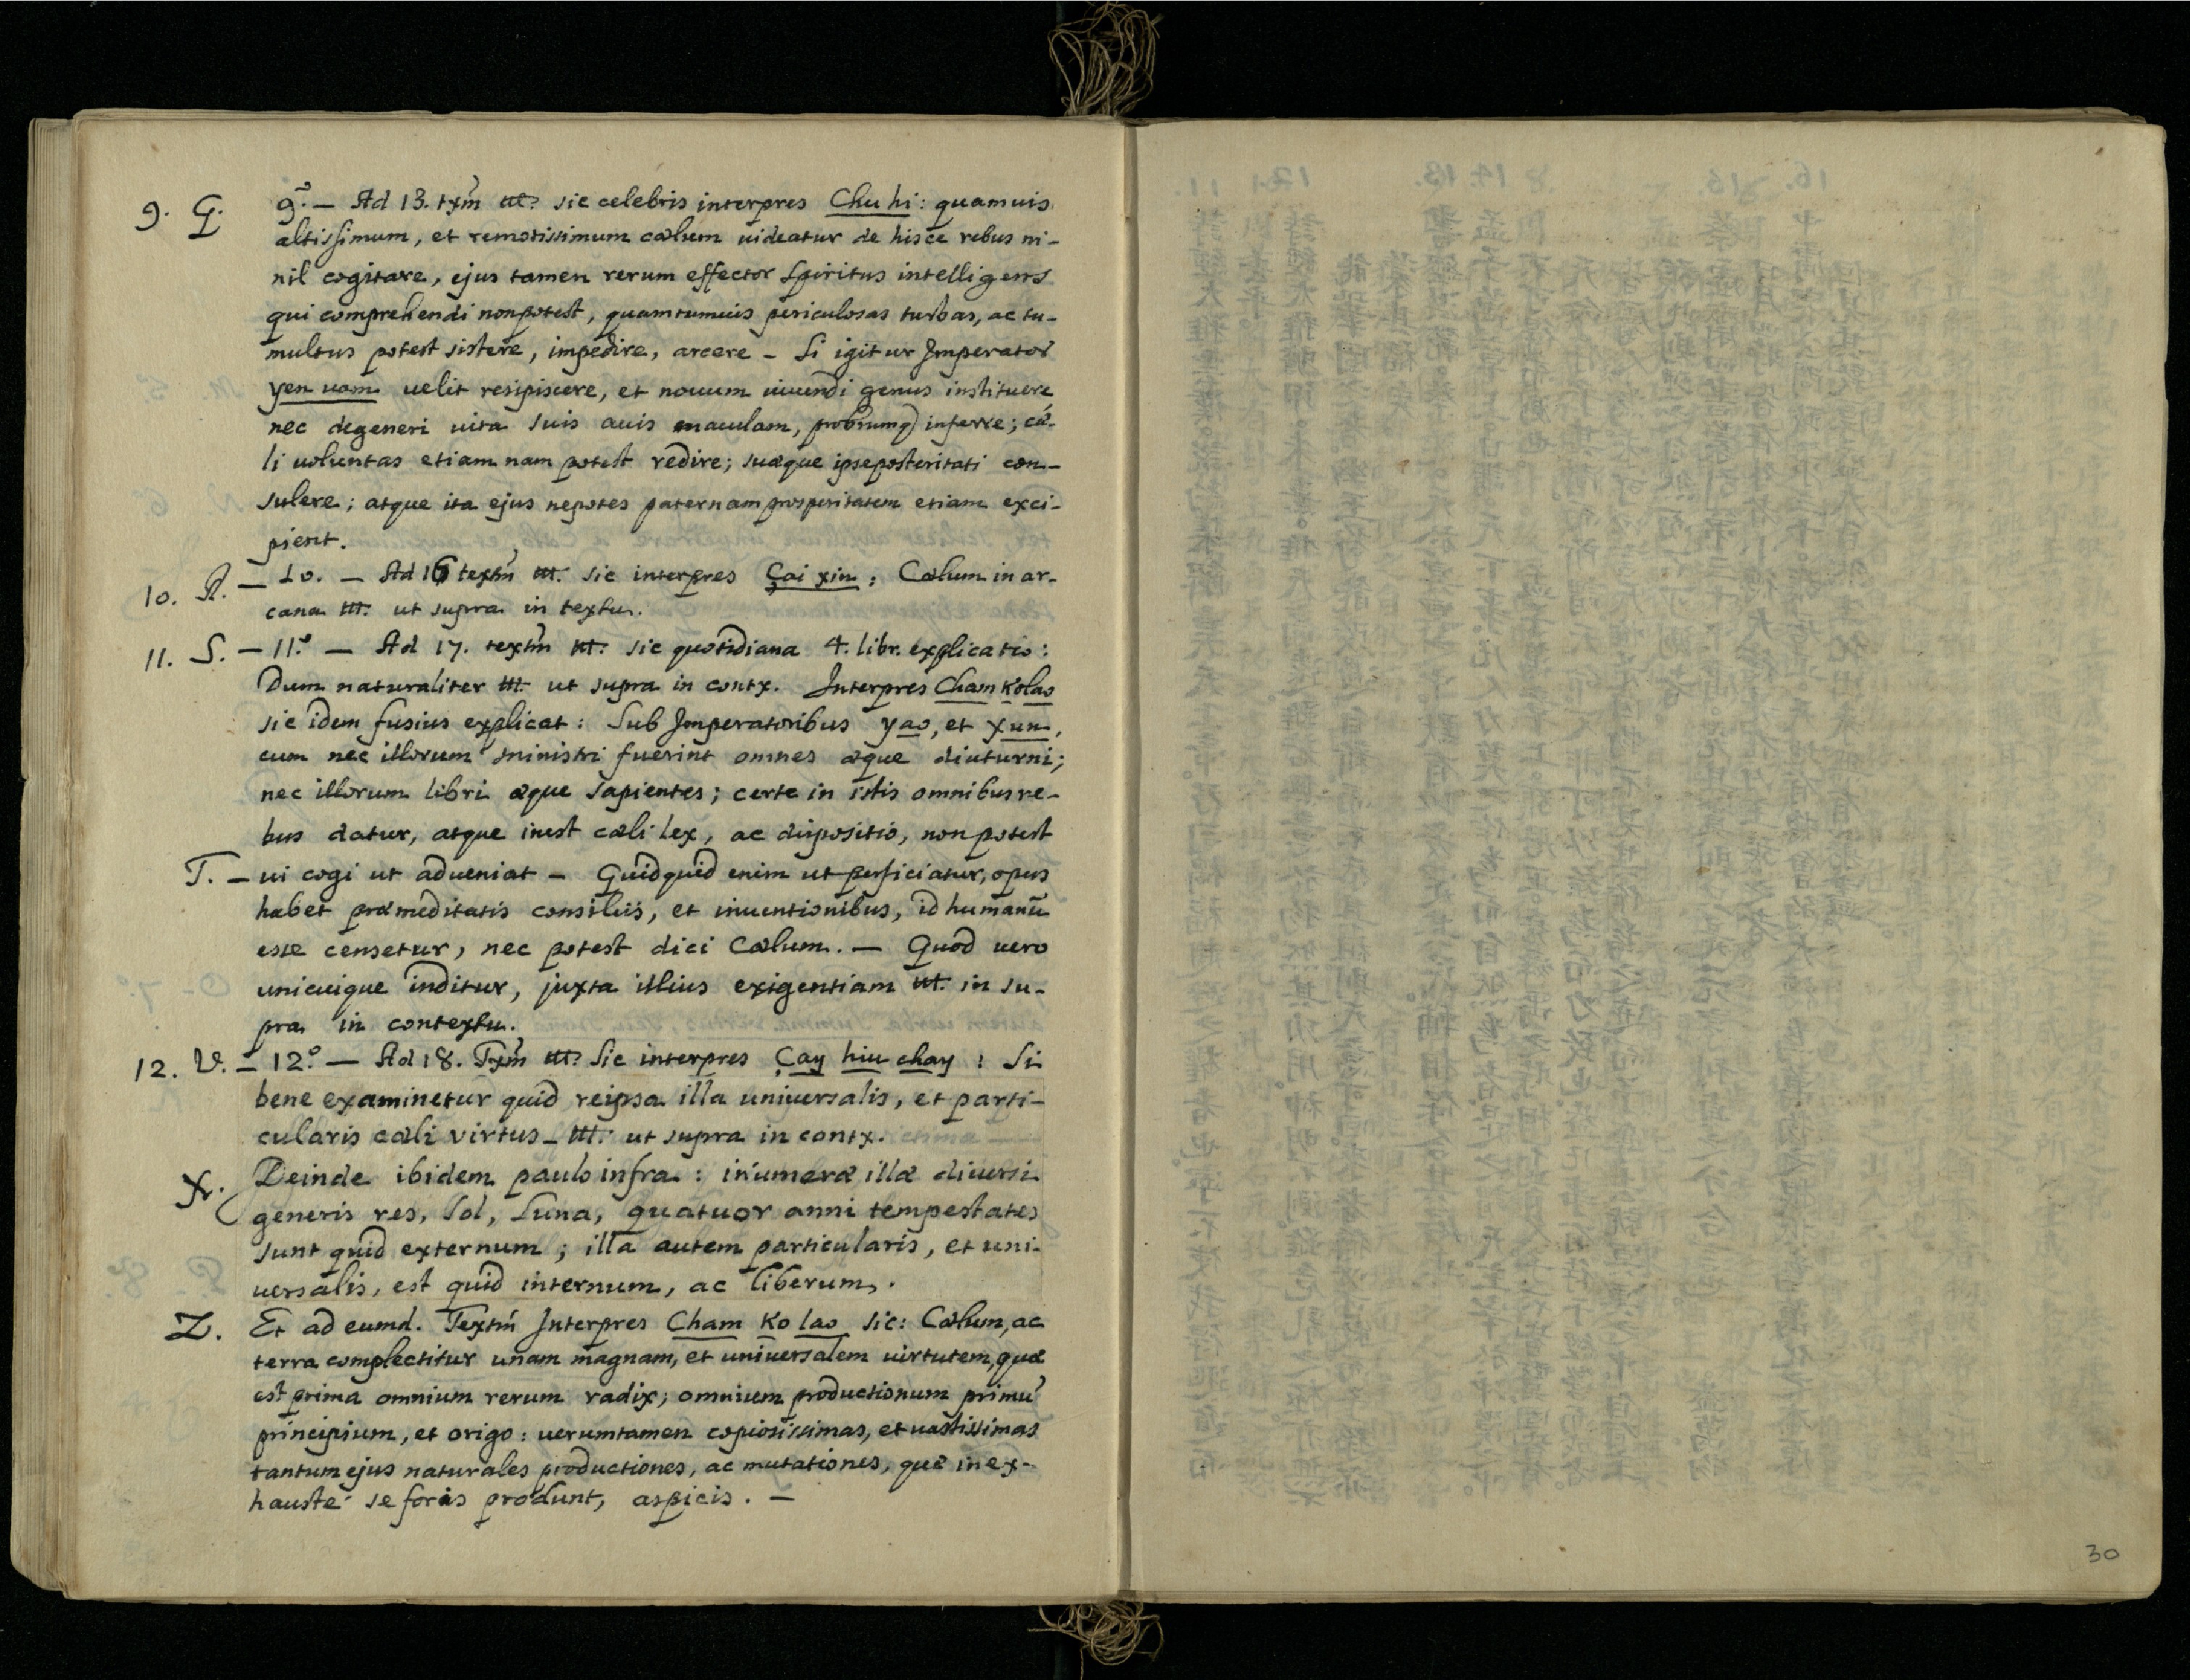 9. Q. 9.° — Ad 13. txm̃ ttt: sic celebris interpres Chu hi: quamuis
altissimum, et remotissimum cælum uideatur de hisce rebus ni-
nil cogitare, ejus tamen rerum effector Spiritus intelligens
qui comprehendi non potest, quamtumuis periculosas turbas, ac tu-
multus potest sistere, impedire, arcere – Si igitur Imperator
yen uam uelit resipiscere, et nouum uiuendi genus instituere
nec degeneri uita suis auis maculam, probrumq) inferre; cæ-
li uoluntas etiam nam potest redire; suæque ipse posteritati con-
sulere; atque ita ejus nepotes paternam prosperitatem etiam exci-
pient.
10. R. — 10. — Ad 16 textm̃ ttt. sic interpres Çai xin: Cælum in ar-
cana ttt: ut supra in textu.
11. S. — 11.° — Ad 17. textm̃ ttt: sic quotidiana 4. libr. explicatio:
Dum naturaliter ttt: ut supra in contx. Interpres Cham Kolao
sic idem fusius explicat: Sub Imperatoribus yao, et Xun,
cum nec illorum ministri fuerint omnes æque diuturni;
nec illorum libri æque sapientes; certe in istis omnibus re-
bus datur, atque inest cæli lex, ac dispositio, non potest
T. — ui cogi ut adueniat – Quidquid enim ut perficiatur, opus
habet præmeditatis consiliis, et inuentionibus, id humanũ
esse censetur, nec potest dici Cælum. — Quod uero
unicuique inditur, juxta illius exigentiam ttt. in su-
pra in contextu.
12. V. — 12.° — Ad 18. Txm̃ ttt: Sic interpres Çay hiu chay: Si
bene examinetur quid reipsa illa uniuersalis, et parti-
cularis cæli virtus – ttt: ut supra in contx.
X. Deinde ibidem paulo infra: inumeræ illæ diuersi
generis res, Sol, Luna, quatuor anni tempestates
sunt quid externum; illa autem particularis, et uni-
uersalis, est quid internum, ac liberum.
Z. Et ad eumd. Textm̃ Interpres Cham Ko lao sic: Cælum, ac
terra complectitur unam magnam, et uniuersalem uirtutem, quæ
est prima omnium rerum radix; omnium productionum primũ
principium, et origo: uerumtamen copiosissimas, et uastissimas
tantum ejus naturales productiones, ac mutationes, quæ inex-
hauste se foris produnt, aspicis. —
30